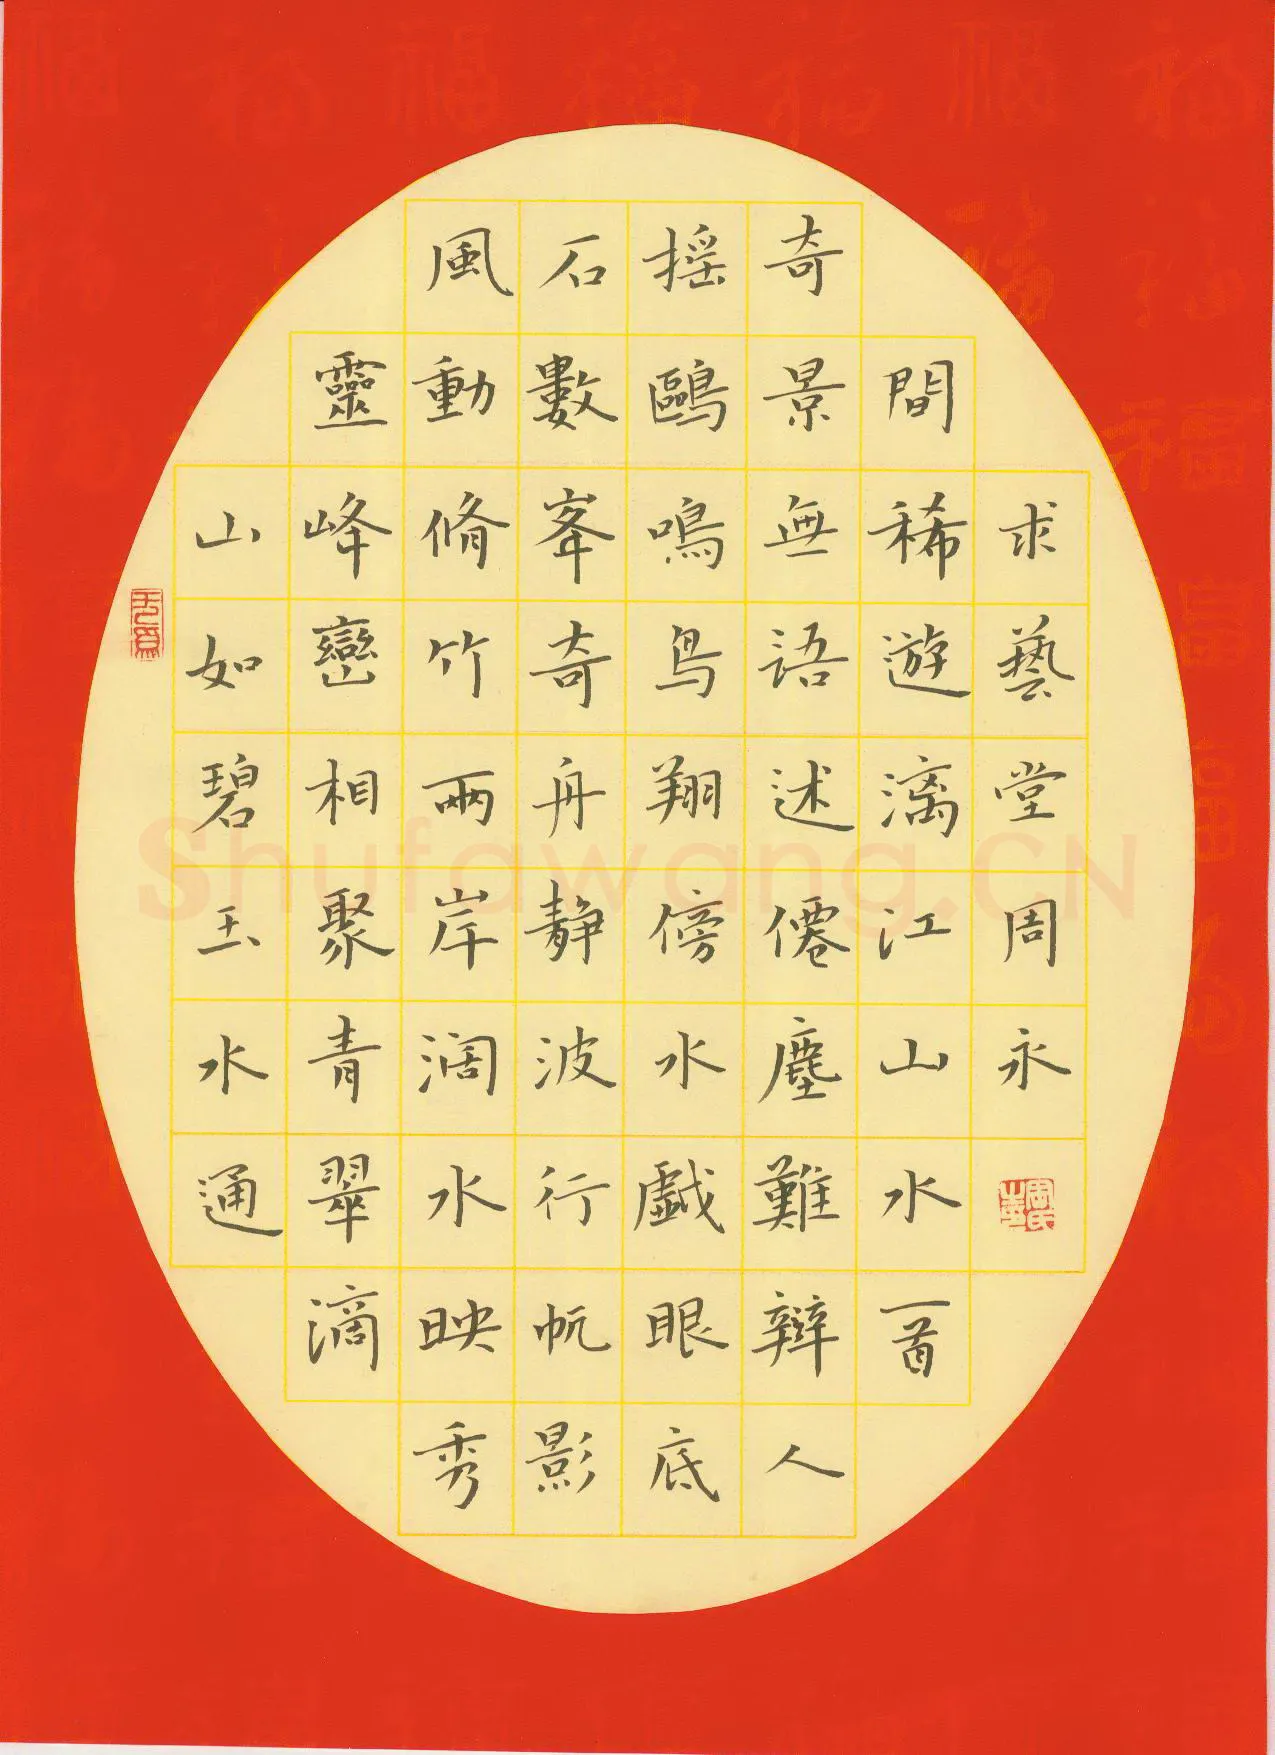 山如碧玉水通
靈峰巒相聚青翠滴
風動脩竹兩岸濶水映秀
石數峯奇舟静波行帆影
摇鷗鳴鳥翔傍水戯眼底
奇景無語述僊塵難辯人
間稀遊漓江山水一首
求藝堂周永
Shufawang.CN